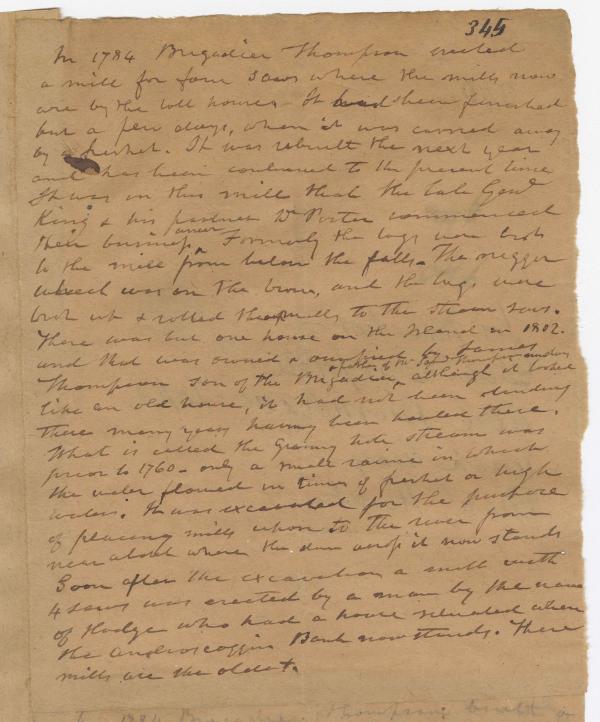 345
In 1784 Brigadier Thompson erected
a mill for four saws where the mills now
are by the toll house. It had been finished
but a few days, when it was carried away
by a freshet. It was rebuilt the next year
and has been continued to the present time
It was in this mill that the late Genl
King & his partner Dr Porter commenced
their business. Formerly the logs were brot
to the mill from below the falls. The
wheel was on the brow, and the logs were
brot up & rolled the mills to the stream saws.
There was but one house on the Island in 1802.
and that was owned & occupied by James
Thompson son of the Brigadier, although it looked
like an old house, it had not been standing
there many years having been hauled there.
What is called the Granny hole stream was
prior to 1760 - only a small ravine in which
the water flowed in times of freshet or high
water. It was excavated for the purpose
of placing mills upon to the river from
near about where the dam across it now stands
Soon after the excavation a mill with
4 saws was erected by a man by the name
of Hodge who had a house situated where
the Androscoggin Bank now stands. These
mills are the oldest.
In 1784 Thompson